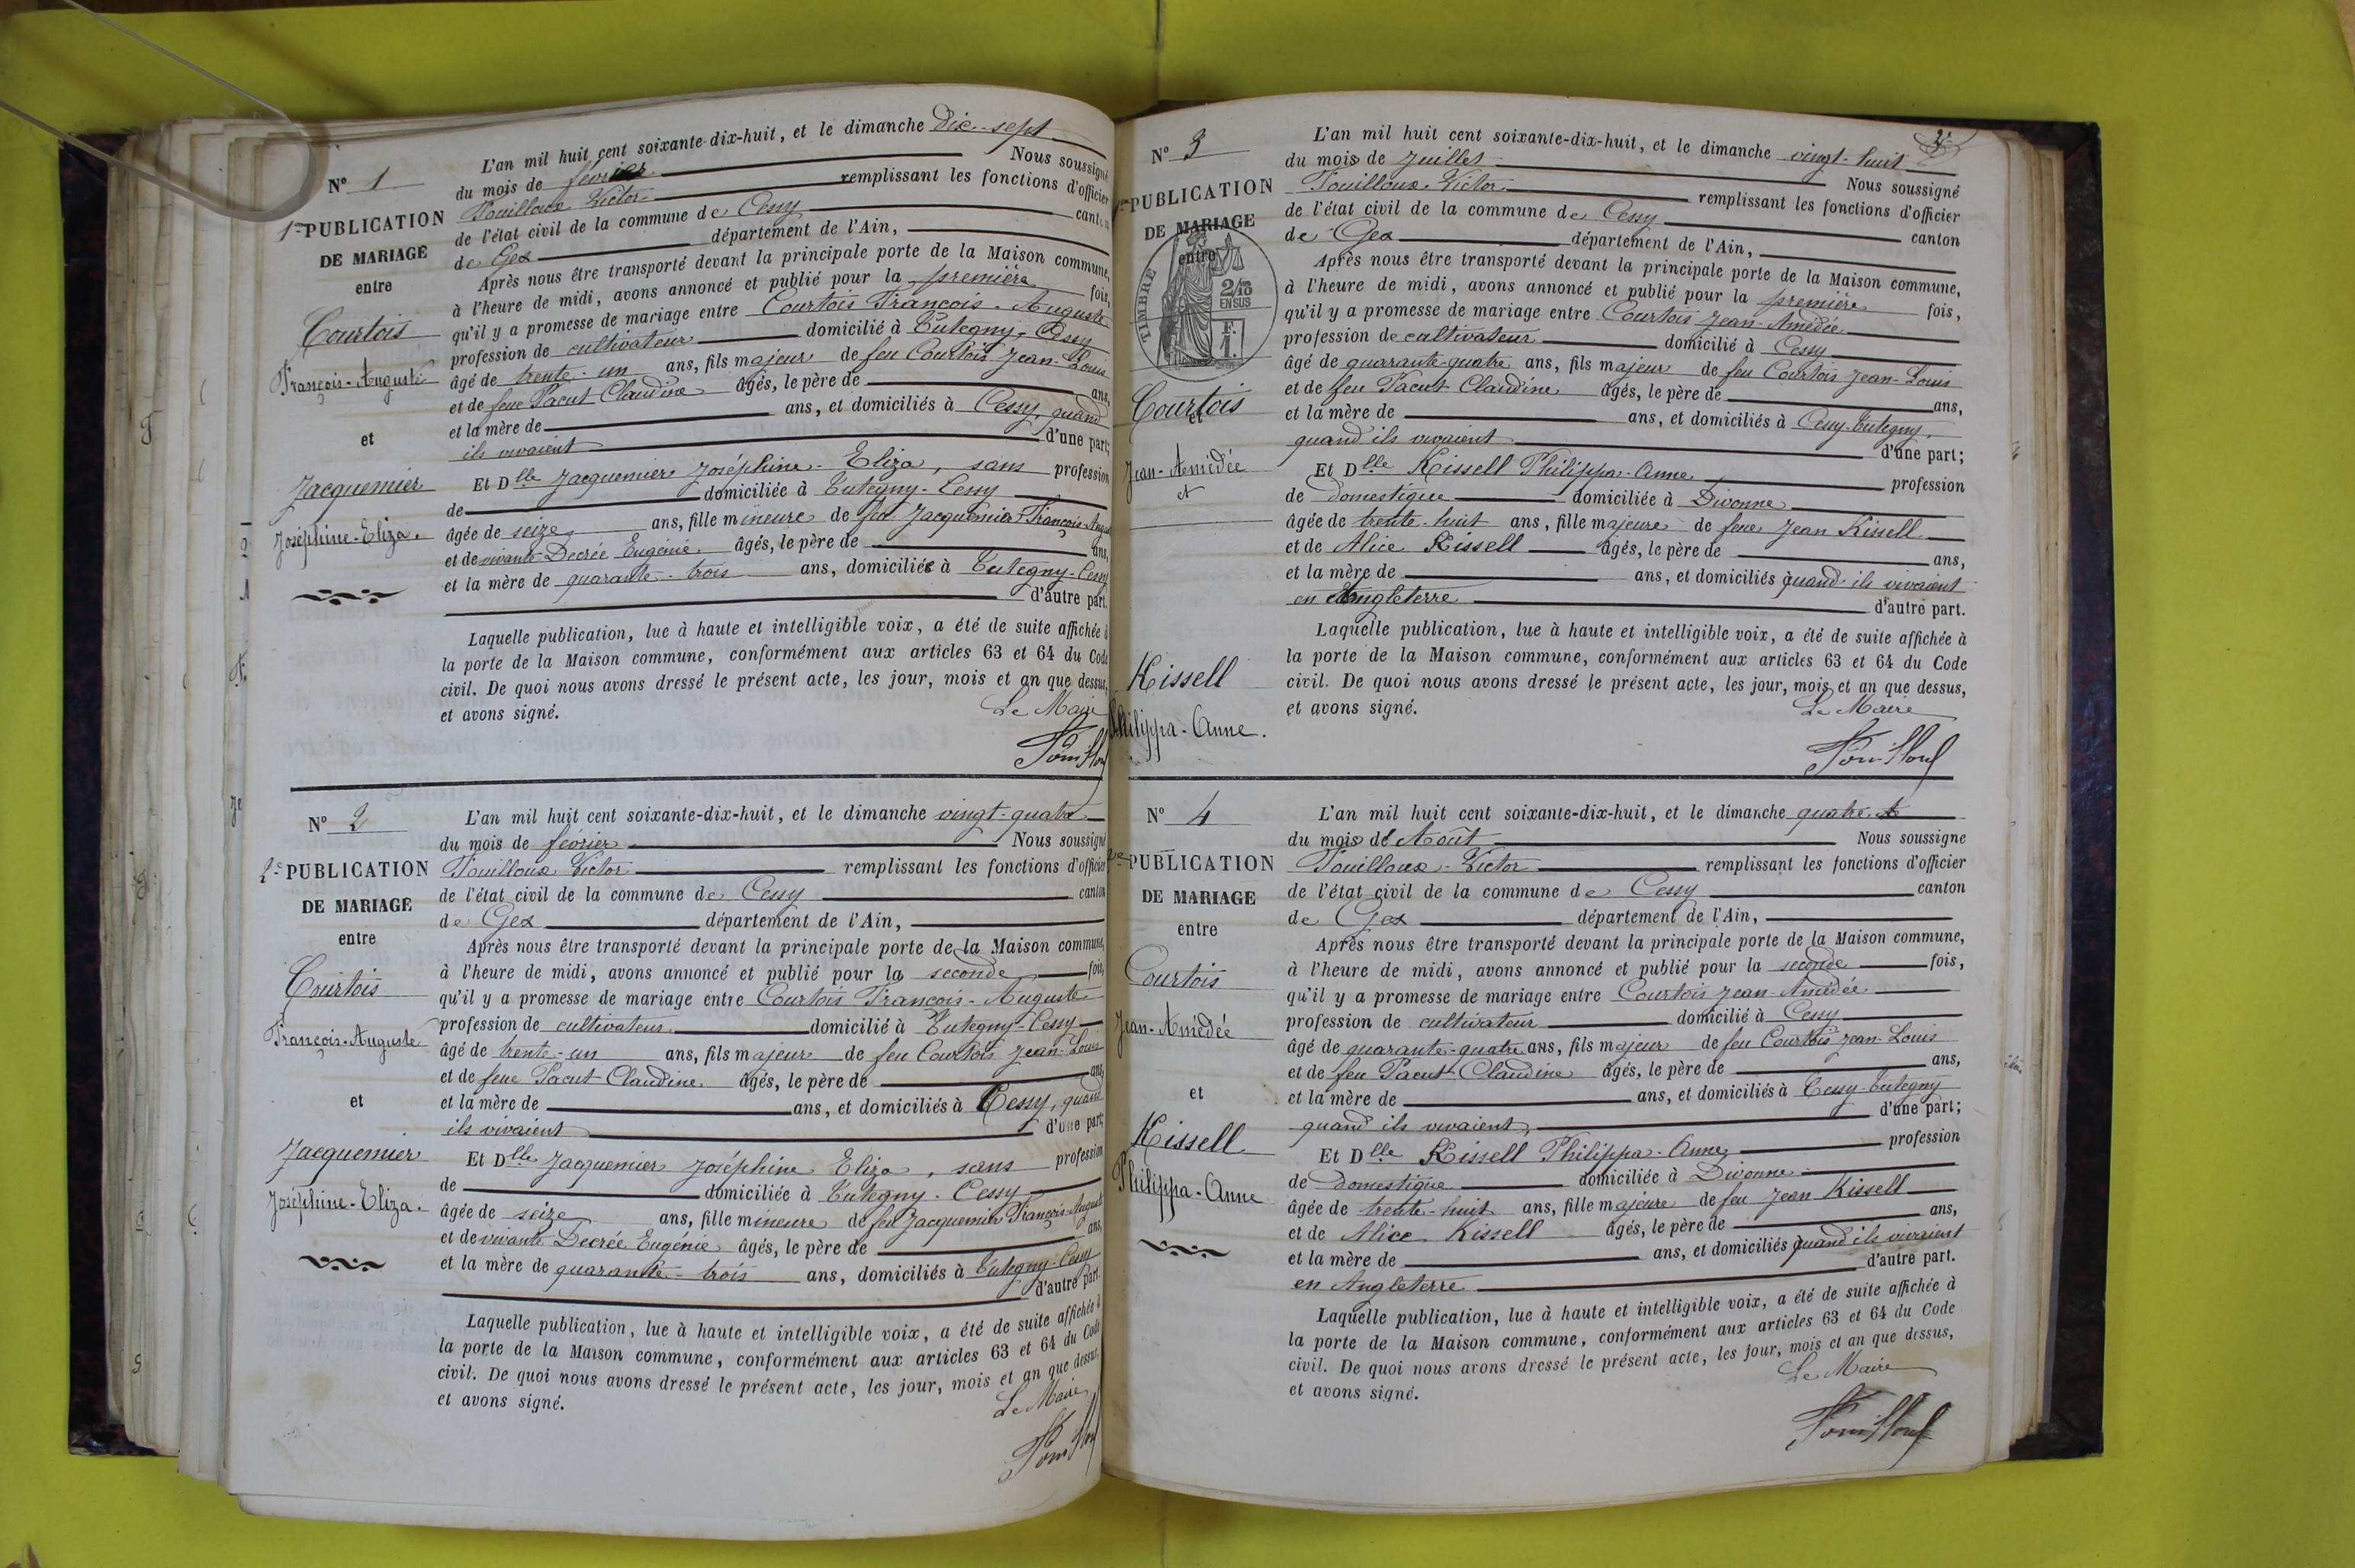 N° 1
1re PUBLICATION
DE MARIAGE
entre
Courtois
François-Auguste
et
Jacquemier
Joséphine-Eliza.
L'an mil huit cent soixante-dix-huit, et le dimanche Dix-sept
du mois de février Nous soussigné
Pouilloux Victor remplissant les fonctions d'officier
de l'état civil de la commune de Cessy canton
de Gex département de l'Ain,
Après nous être transporté devant la principale porte de la Maison commune,
à l'heure de midi, avons annoncé et publié pour la première fois,
qu'il y a promesse de mariage entre Courtois François-Auguste
profession de cultivateur domicilié à Tutegny-Cessy
âgé de trente-un ans, fils majeur de feu Courtois Jean-Louis
et de feue Pacut Claudine âgés, le père de ans,
et la mère de ans, et domiciliés à Cessy, quand
ils vivaient d'une part;
Et Dlle Jacquemier Joséphine-Eliza, sans profession
de domiciliée à Tutegny-Cessy
âgée de seize ans, fille mineure de feu Jacquemier François-Auguste
et de vivante Decrée Eugénie âgés, le père de ans,
et la mère de quarante-trois ans, domiciliée à Tutegny-Cessy
d'autre part.
Laquelle publication, lue à haute et intelligible voix, a été de suite affichée à
la porte de la Maison commune, conformément aux articles 63 et 64 du Code
civil. De quoi nous avons dressé le présent acte, les jour, mois et an que dessus,
et avons signé.
Le Maire
Pouilloux
N° 2
2e PUBLICATION
DE MARIAGE
entre
Courtois
François-Auguste
et
Jacquemier
Joséphine-Eliza.
L'an mil huit cent soixante-dix-huit, et le dimanche vingt-quatre
du mois de février Nous soussigné
Pouilloux Victor remplissant les fonctions d'officier
de l'état civil de la commune de Cessy canton
de Gex département de l'Ain,
Après nous être transporté devant la principale porte de la Maison commune,
à l'heure de midi, avons annoncé et publié pour la seconde fois,
qu'il y a promesse de mariage entre Courtois François-Auguste
profession de cultivateur domicilié à Tutegny-Cessy
âgé de trente-un ans, fils majeur de feu Courtois Jean-Louis
et de feue Pacut Claudine âgés, le père de ans,
et la mère de ans, et domiciliés à Cessy, quand
ils vivaient d'une part;
Et Dlle Jacquemier Joséphine Eliza, sans profession
de domiciliée à Tutegny-Cessy
âgée de seize ans, fille mineure de feu Jacquemier François-Auguste
et de vivante Decrée Eugénie âgés, le père de ans,
et la mère de quarante-trois ans, domiciliés à Tutegny-Cessy
d'autre part.
Laquelle publication, lue à haute et intelligible voix, a été de suite affichée à
la porte de la Maison commune, conformément aux articles 63 et 64 du Code
civil. De quoi nous avons dressé le présent acte, les jour, mois et an que dessus,
et avons signé.
Le Maire
Pouilloux
N° 3
1re PUBLICATION
DE MARIAGE
entre
TIMBRE
2/10
EN SUS
F.
1.
Courtois
et
Jean-Amédée
et
Kissell
Philippa-Anne.
L'an mil huit cent soixante-dix-huit, et le dimanche vingt-huit
du mois de Juillet Nous soussigné
Pouilloux Victor remplissant les fonctions d'officier
de l'état civil de la commune de Cessy canton
de Gex département de l'Ain,
Après nous être transporté devant la principale porte de la Maison commune,
à l'heure de midi, avons annoncé et publié pour la première fois,
qu'il y a promesse de mariage entre Courtois Jean-Amédée
profession de cultivateur domicilié à Cessy
âgé de quarante-quatre ans, fils majeur de feu Courtois Jean-Louis
et de feu Pacut Claudine âgés, le père de ans,
et la mère de ans, et domiciliés à Cessy-Tutegny,
quand ils vivaient d'une part;
Et Dlle Kissell Philippa-Anne profession
de domestique domiciliée à Divonne
âgée de trente-huit ans, fille majeure de feue Jean Kissell
et de Alice Kissell âgés, le père de ans,
et la mère de ans, et domiciliés quand ils vivaient
en Angleterre d'autre part.
Laquelle publication, lue à haute et intelligible voix, a été de suite affichée à
la porte de la Maison commune, conformément aux articles 63 et 64 du Code
civil. De quoi nous avons dressé le présent acte, les jour, mois et an que dessus,
et avons signé.
Le Maire
Pouilloux
N° 4
2e PUBLICATION
DE MARIAGE
entre
Courtois
Jean-Amédée
et
Kissell
Philippa-Anne
L'an mil huit cent soixante-dix-huit, et le dimanche quatre
du mois de Août Nous soussigné
Pouilloux-Victor remplissant les fonctions d'officier
de l'état civil de la commune de Cessy canton
de Gex département de l'Ain,
Après nous être transporté devant la principale porte de la Maison commune,
à l'heure de midi, avons annoncé et publié pour la seconde fois,
qu'il y a promesse de mariage entre Courtois Jean-Amédée
profession de cultivateur domicilié à Cessy
âgé de quarante-quatre ans, fils majeur de feu Courtois Jean-Louis
et de feu Pacut Claudine âgés, le père de ans,
et la mère de ans, et domiciliés à Cessy-Tutegny
quand ils vivaient, d'une part;
Et Dlle Kissell Philippa-Anne profession
de domestique domiciliée à Divonne
âgée de trente-huit ans, fille majeure de feu Jean Kissell
et de Alice Kissell âgés, le père de ans,
et la mère de ans, et domiciliés quand ils vivaient
en Angleterre d'autre part.
Laquelle publication, lue à haute et intelligible voix, a été de suite affichée à
la porte de la Maison commune, conformément aux articles 63 et 64 du Code
civil. De quoi nous avons dressé le présent acte, les jour, mois et an que dessus,
et avons signé.
Le Maire
Pouilloux